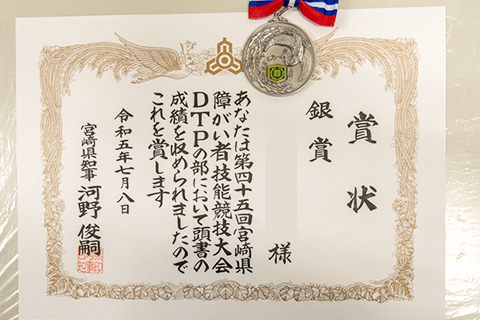 賞状
銀賞
様
あなたは第四十五回宮崎県
障がい者技能競技大会
DTPの部において頭書の
成績を収められましたので
これを賞します
令和五年七月八日
宮崎県知事 河野 俊嗣